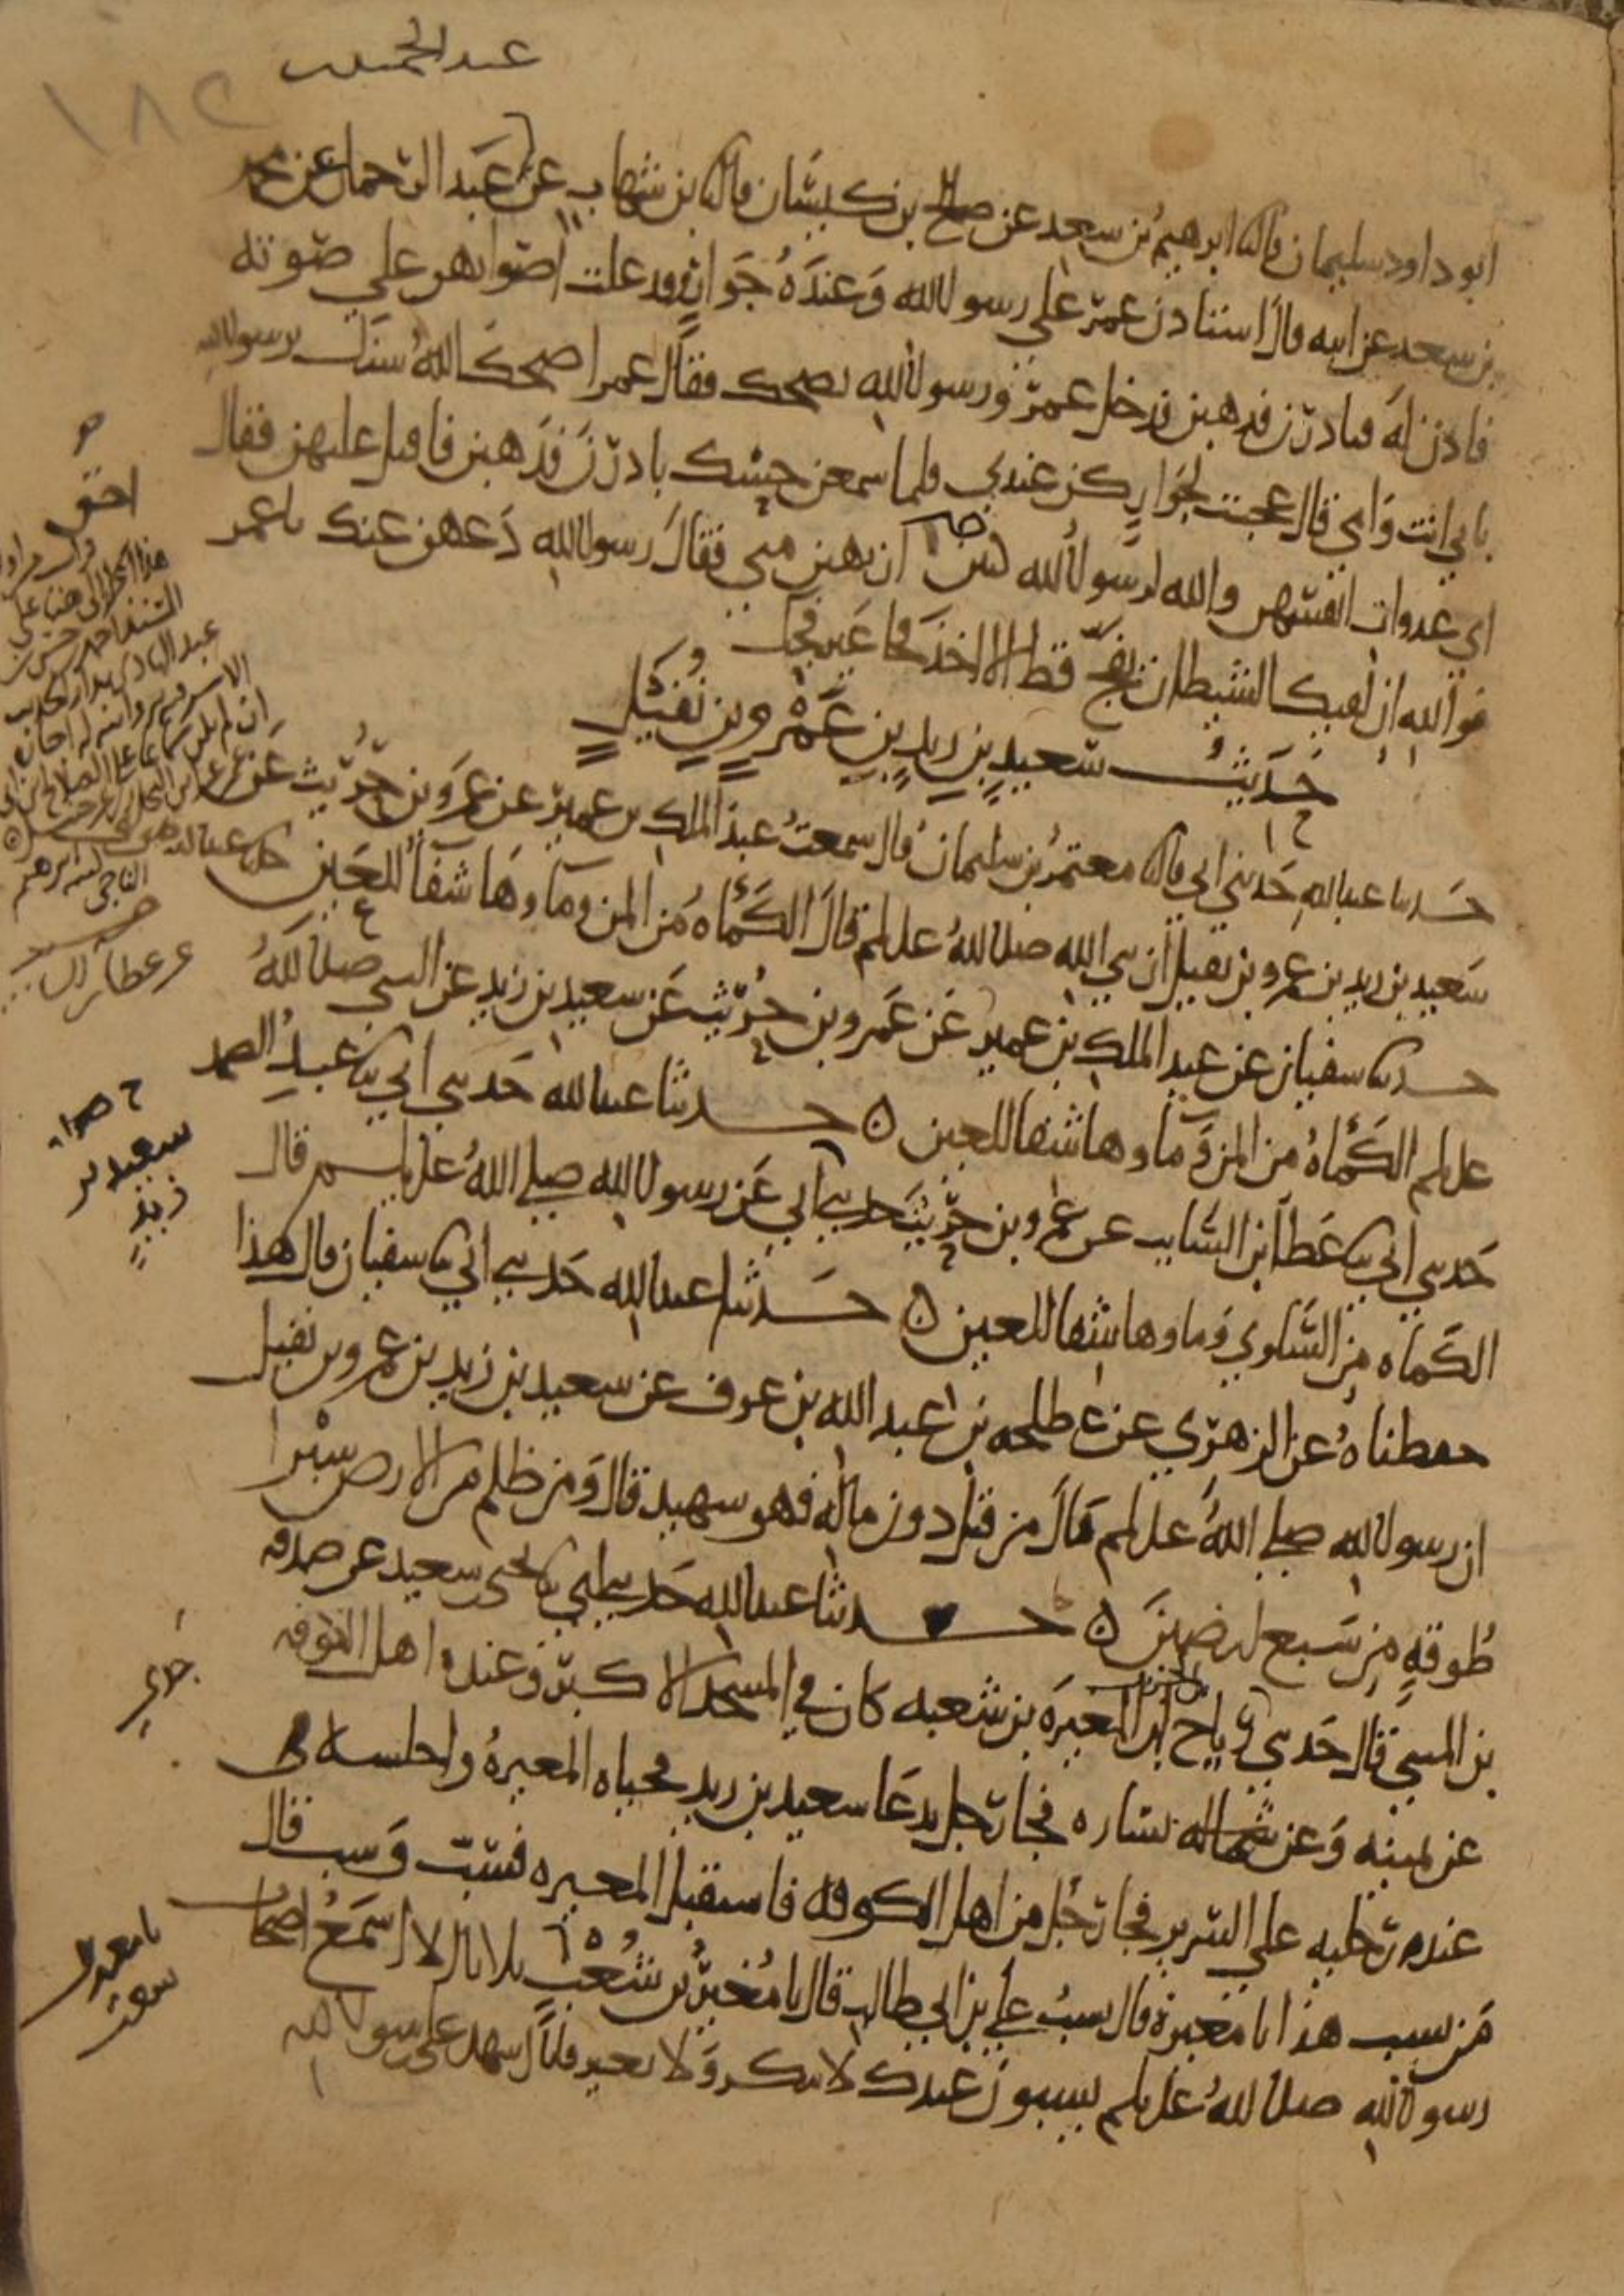 عبد الحميد
١٨٢
ابو داود سليمان قال ثنا ابرهيم بن سعد عن صالح بن كيسان قال ثنا بن شهاب عن عبد الحميد بن عبد الرحمان عن محمد
بن سعد عن ابيه قال استاذن عمر على رسول الله وعنده جوار قد علت اصواتهن على صوته
فاذن له فبادرن فذهبن فدخل عمر ورسول الله يضحك فقال عمر اضحك الله سنك يرسول الله
بابي انت وامي قال عجبت لجوار كن عندي فلما سمعن حسك بادرن فذهبن فاقبل عليهن فقال
اي عدوات انفسهن والله لرسول الله كنتن احق ان تهبن مني فقال رسول الله دعهن عنك يا عمر
فوالله ان لقيك الشيطان بفج قط الا اخذ فجا غير فجك
حديث سعيد بن زيد بن عمرو بن نفيل
حدثنا عبد الله حدثني ابي قال ثنا معتمر بن سليمان قال سمعت عبد الملك بن عمير عن عمرو بن حريث عن
سعيد بن زيد بن عمرو بن نفيل ان نبي الله صلى الله عليه وسلم قال الكماه من المن وماوها شفا للعين
حدثنا سفيان عن عبد الملك بن عمير عن عمرو بن حريث عن سعيد بن زيد عن النبي صلى الله
عليه وسلم الكماه من المن وماوها شفا للعين ه حدثنا عبد الله حدثني ابي ثنا عبد الصمد
حدثني ابي ثنا عطا بن السايب عن عمرو بن حريث حدثني ابي عن رسول الله صلى الله عليه وسلم قال
الكماه من السلوي وماوها شفا للعين ه حدثنا عبد الله حدثني ابي ثنا سفيان قال هذا
حفظناه عن الزهري عن طلحه بن عبد الله بن عوف عن سعيد بن زيد بن عمرو بن نفيل
ان رسول الله صلى الله عليه وسلم قال من قتل دون ماله فهو شهيد قال ومن ظلم من الارض شبرا
طوقه من سبع ارضين ه حدثنا عبد الله حدثني ابي ثنا يحيى بن سعيد عن صدقه
بن المثني قال حدثني رياح بن الحارث ان المغيره بن شعبه كان في المسجد الاكبر وعنده اهل الكوفه
عن يمينه وعن شماله يساره فجا رجل يدعا سعيد بن زيد فحياه المغيره واجلسه
عند رجليه على السرير فجا رجل من اهل الكوفه فاستقبل المغيره فسب وسب فقال
من يسب هذا يا مغيره قال يسب علي بن ابي طالب قال يا مغير بن شعب ثلاثا الا اسمع اصحاب
رسول الله صلى الله عليه وسلم يسبون عندك لا تنكر ولا تغير فانا اشهد على رسول الله
احق
سعيد بن
زيد